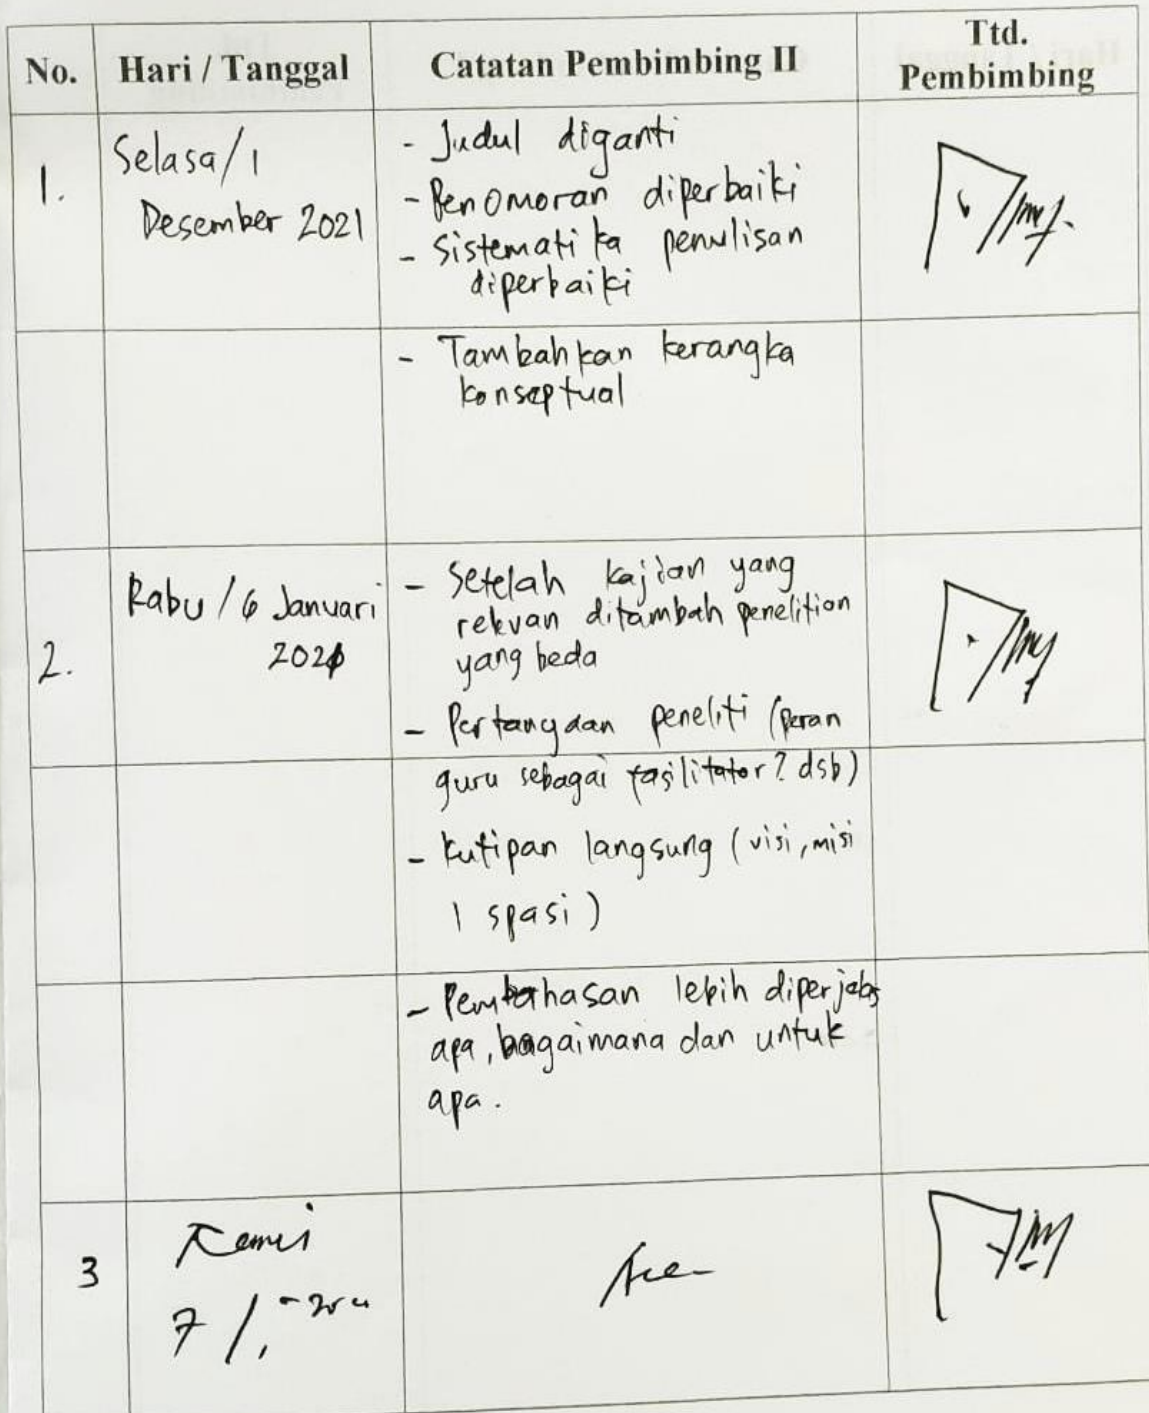 No. Hari / Tanggal Catatan Pembimbing II Ttd. Pembimbing
1. Selasa / 1 Desember 2021
- Judul diganti
- Penomoran diperbaiki
- Sistematika penulisan
diperbaiki
- Tambahkan kerangka
konseptual
2. Rabu / 6 Januari
2021
- Setelah kajian yang
relevan ditambah penelition
yang beda
- Pertanyaan peneliti (peran
guru sebagai fasilitator? dsb)
- kutipan langsung (visi, misi
1 spasi)
- Pembahasan lebih diperjelas
apa, bagaimana dan untuk
apa.
3 Kamis
7 / 1
Acc